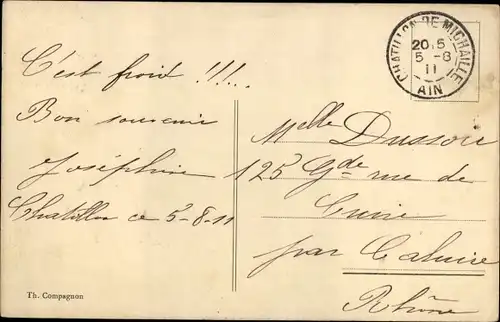 C'est froid !!!...
Bon souvenir
Joséphine
Chatillon ce 5-8-11
Th. Compagnon
CHATILLON-DE-MICHAILLE
20.5
5-8
11
AIN
Melle Dussou
125 Gde rue de
Cuire
par Caluire
Rhône